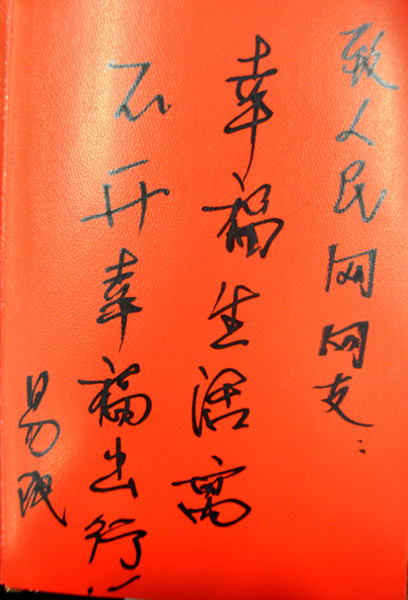 致人民网网友：
幸福生活离
不开幸福出行！
易珉